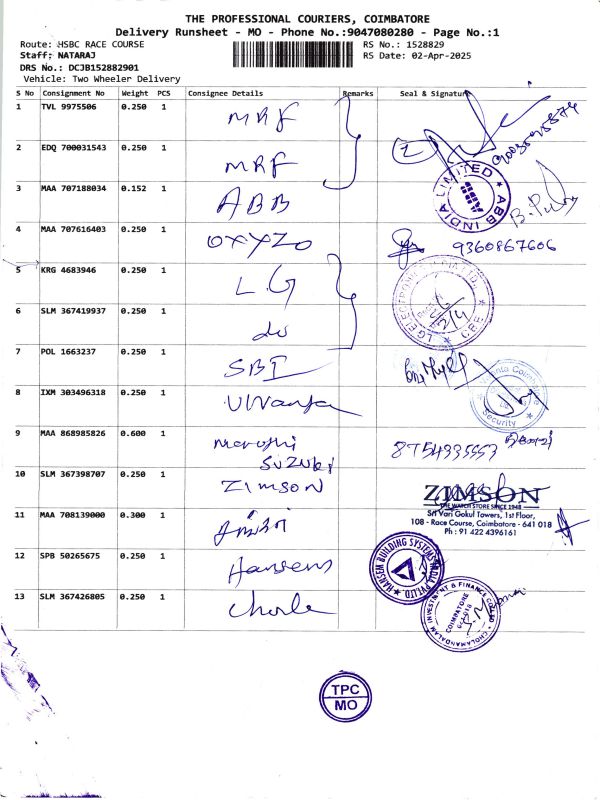 THE PROFESSIONAL COURIERS, COIMBATORE
Delivery Runsheet - MO - Phone No.:9047080280 - Page No.:1
Route: HSBC RACE COURSE RS No.: 1528829
Staff: NATARAJ RS Date: 02-Apr-2025
DRS No.: DCJB152882901
Vehicle: Two Wheeler Delivery
S No Consignment No Weight PCS Consignee Details Remarks Seal & Signature
1 TVL 9975506 0.250 1 MRF
2 EDQ 700031543 0.250 1 MRF
3 MAA 707188034 0.152 1 ABB ABB INDIA LIMITED
4 MAA 707616403 0.250 1 OXYZO 9360867606
5 KRG 4683946 0.250 1 L.G
6 SLM 367419937 0.250 1 do 2/4 CBE
7 POL 1663237 0.250 1 SBI
8 IXM 303496318 0.250 1 Vivanta Coimbatore Security
9 MAA 868985826 0.600 1 Maruthi
Suzuki
10 SLM 367398707 0.250 1 Zimson ZIMSON
THE WATCH STORE SINCE 1948
Sri Vari Gokul Towers, 1st Floor,
108 - Race Course, Coimbatore - 641 018
Ph : 91 422 4396161
11 MAA 708139000 0.300 1
12 SPB 50265675 0.250 1 Hansens HANSEN BUILDING SYSTEMS INDIA PVT LTD
13 SLM 367426805 0.250 1 Chola CHOLAMANDALAM INVESTMENT & FINANCE CO LTD
COIMBATORE
TPC
MO